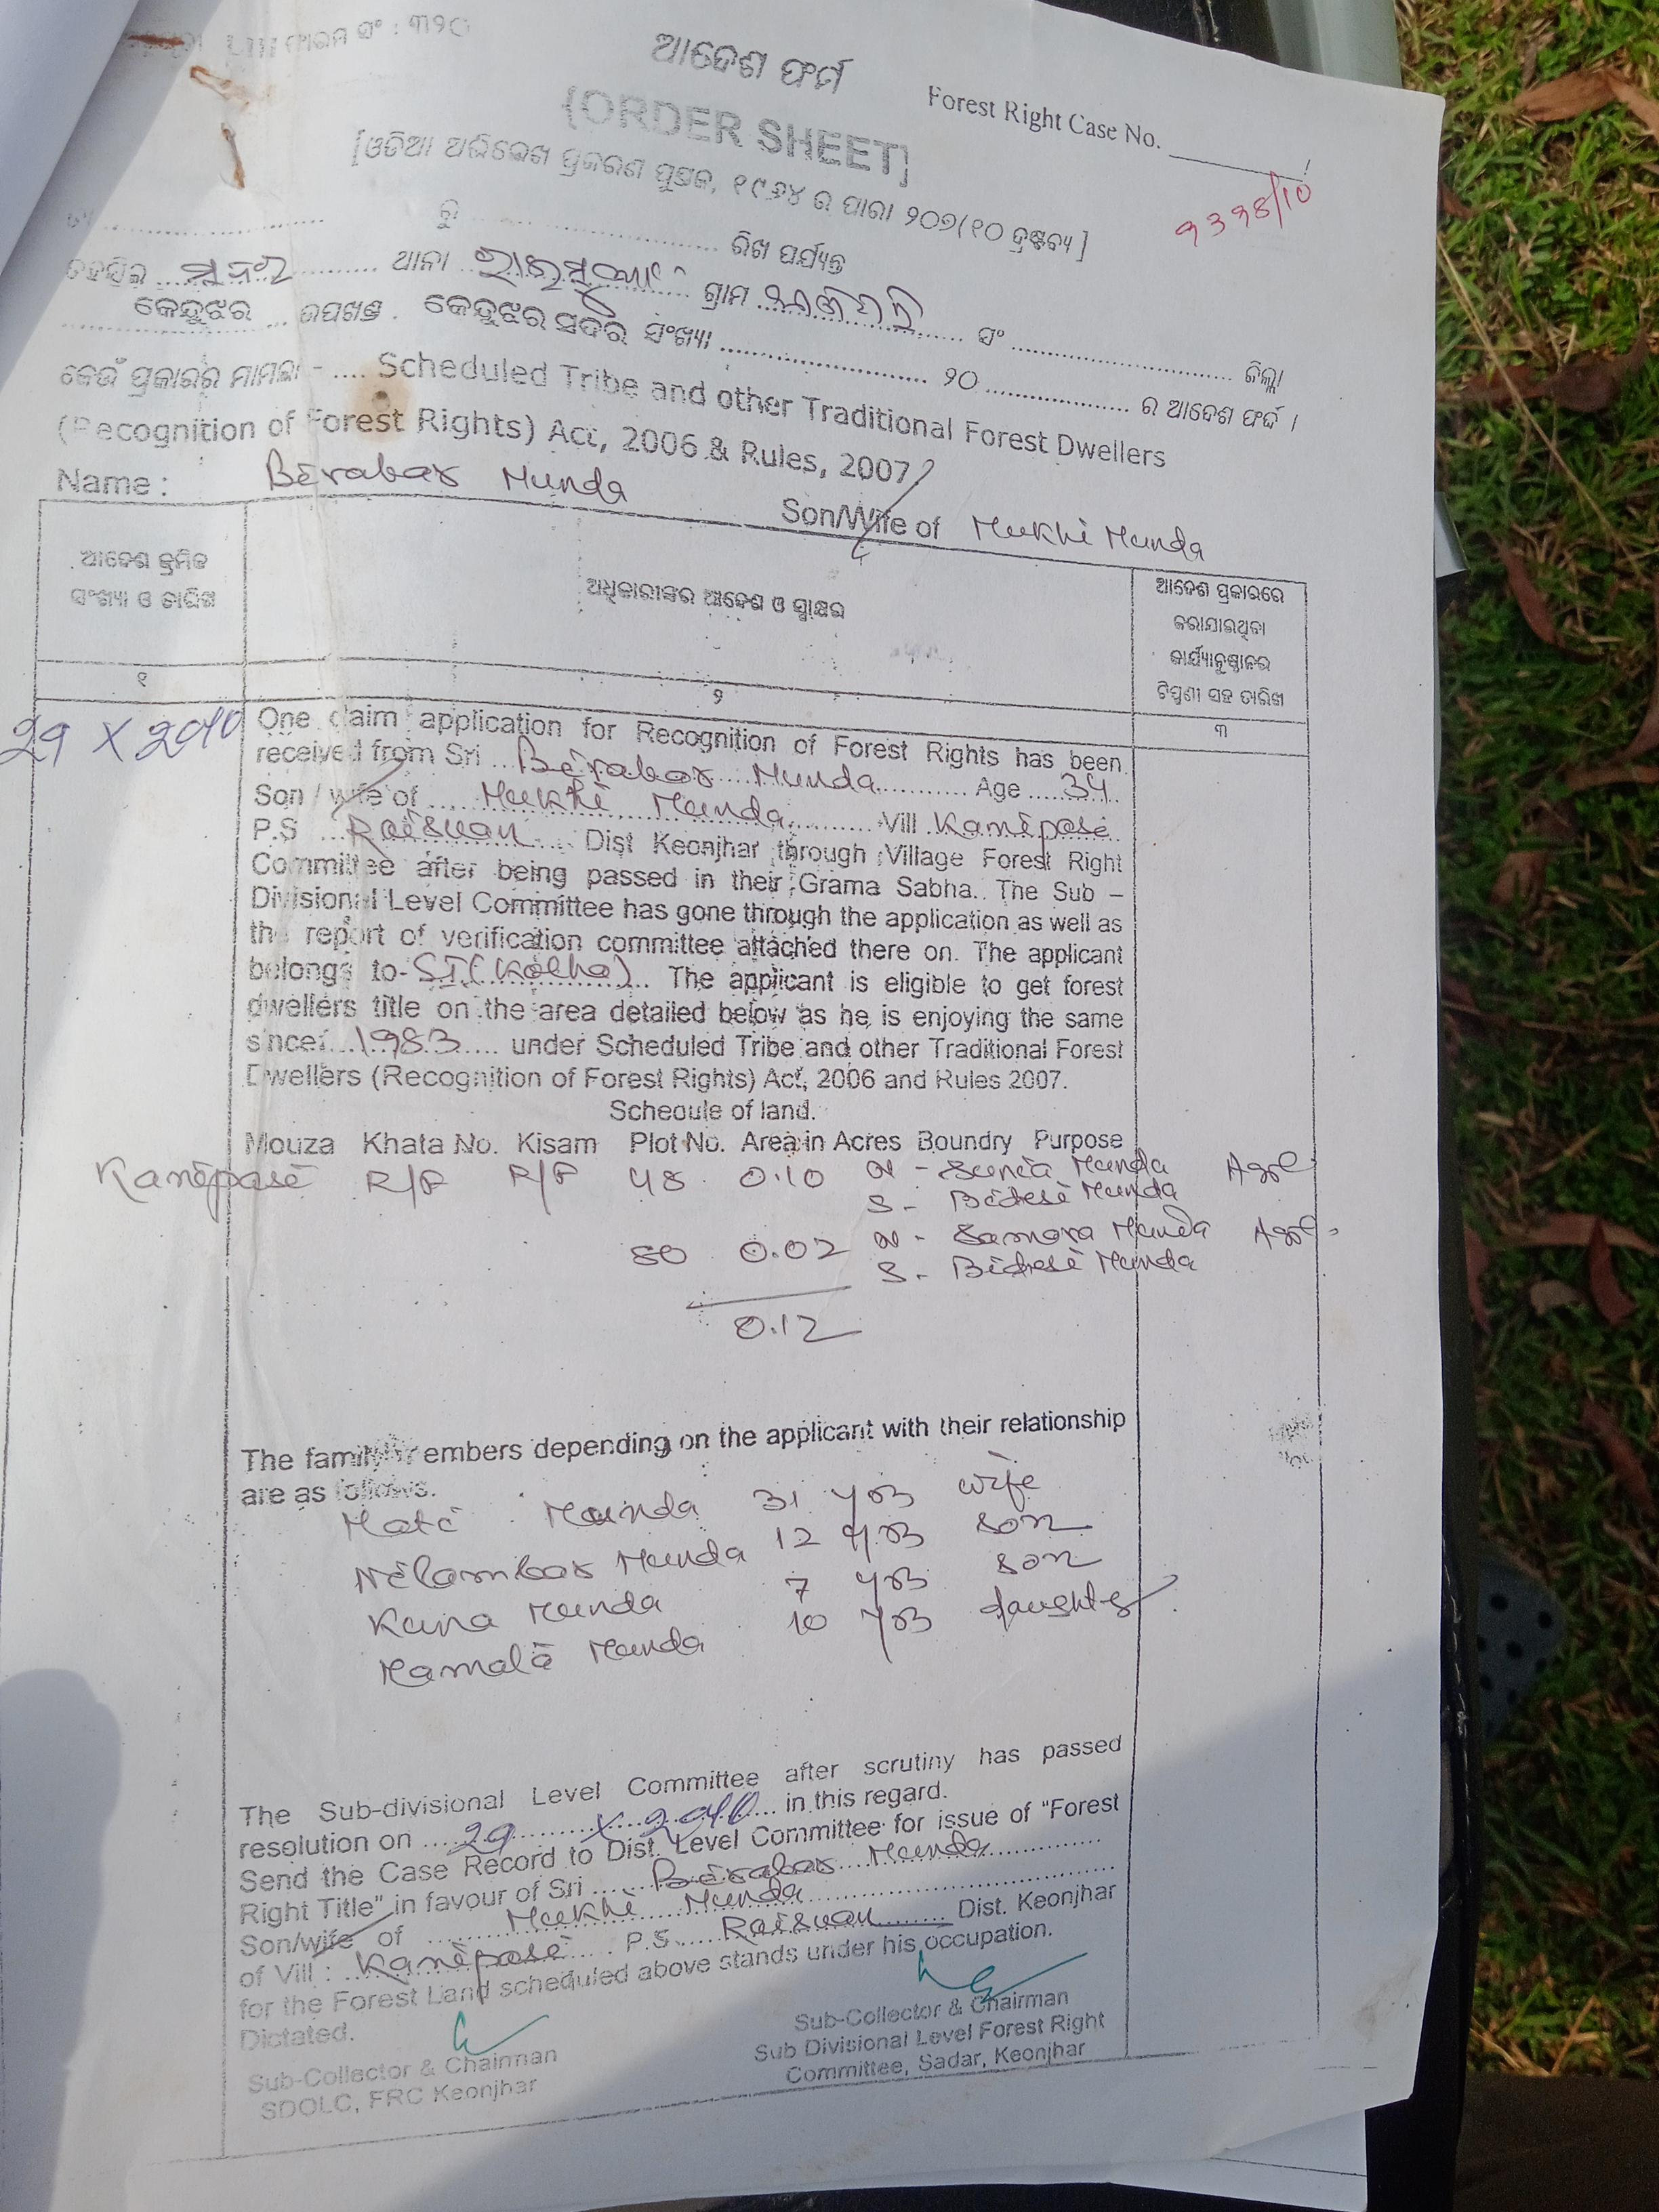 ଫାରମ ସଂ : ୩୨୦
ଆଦେଶ ଫର୍ଦ୍ଦ
Forest Right Case No.
{ORDER SHEET]
[ଓଡିଆ ଅଭିଲେଖ ପ୍ରକରଣ ପୁସ୍ତକ, ୧୯୬୪ ର ପାରା ୨୦୭(୧୦ ଦ୍ରଷ୍ଟବ୍ୟ ]
ରୁ ରିଖ ପର୍ଯ୍ୟନ୍ତ
ତହସିଲ ଥାନା ଗ୍ରାମ ସଂ ଜିଲ୍ଲା
କେନ୍ଦୁଝର ଉପଖଣ୍ଡ . କେନ୍ଦୁଝର ସଦର ସଂଖ୍ୟା ୨୦ ର ଆଦେଶ ଫର୍ଦ୍ଦ ।
କେଉଁ ପ୍ରକାରର ମାମଲା - .... Scheduled Tribe and other Traditional Forest Dwellers
(Recognition of Forest Rights) Act, 2006 & Rules, 2007
Name : Birabar Munda Son/Wife of Mukhi Munda
ଆଦେଶ କ୍ରମିକ
ସଂଖ୍ୟା ଓ ତାରିଖ
ଅଧିକାରୀଙ୍କର ଆଦେଶ ଓ ସ୍ୱାକ୍ଷର
ଆଦେଶ ପ୍ରକାରରେ
କରାଯାଇଥିବା
କାର୍ଯ୍ୟାନୁଷ୍ଠାନର
ଟିପ୍ପଣୀ ସହ ତାରିଖ
୧ ୨ ୩
29 X 2010
One claim application for Recognition of Forest Rights has been
received from Sri Birabar Munda Age 34
Son / wife of Mukhi Munda Vill Kanipasi
P.S Raisuan Dist Keonjhar through Village Forest Right
Committee after being passed in their Grama Sabha. The Sub –
Divisional Level Committee has gone through the application as well as
the report of verification committee attached there on. The applicant
belongs to- ST (Kolha) The applicant is eligible to get forest
dwellers title on the area detailed below as he is enjoying the same
since 1983 under Scheduled Tribe and other Traditional Forest
Dwellers (Recognition of Forest Rights) Act, 2006 and Rules 2007.
Schedule of land.
Mouza Khata No. Kisam Plot No. Area in Acres Boundry Purpose
Kanipasi R/F R/F 48 0.10 N - Sunia Munda Agrl
S - Bidesi Munda
50 0.02 N - Samara Munda Agrl
S - Bidesi Munda
0.12
The family members depending on the applicant with their relationship
are as follows.
Mati Munda 31 yrs wife
Nilambar Munda 12 yrs son
Kuna Munda 7 yrs son
Mamali Munda 10 yrs daughter
The Sub-divisional Level Committee after scrutiny has passed
resolution on 29 X 2010 in this regard.
Send the Case Record to Dist. Level Committee for issue of "Forest
Right Title" in favour of Sri Birabar Munda
Son/wife of Mukhi Munda
of Vill : Kanipasi P.S. Raisuan Dist. Keonjhar
for the Forest Land scheduled above stands under his occupation.
Dictated.
Sub-Collector & Chairman
SDOLC, FRC Keonjhar
Sub-Collector & Chairman
Sub Divisional Level Forest Right
Committee, Sadar, Keonjhar